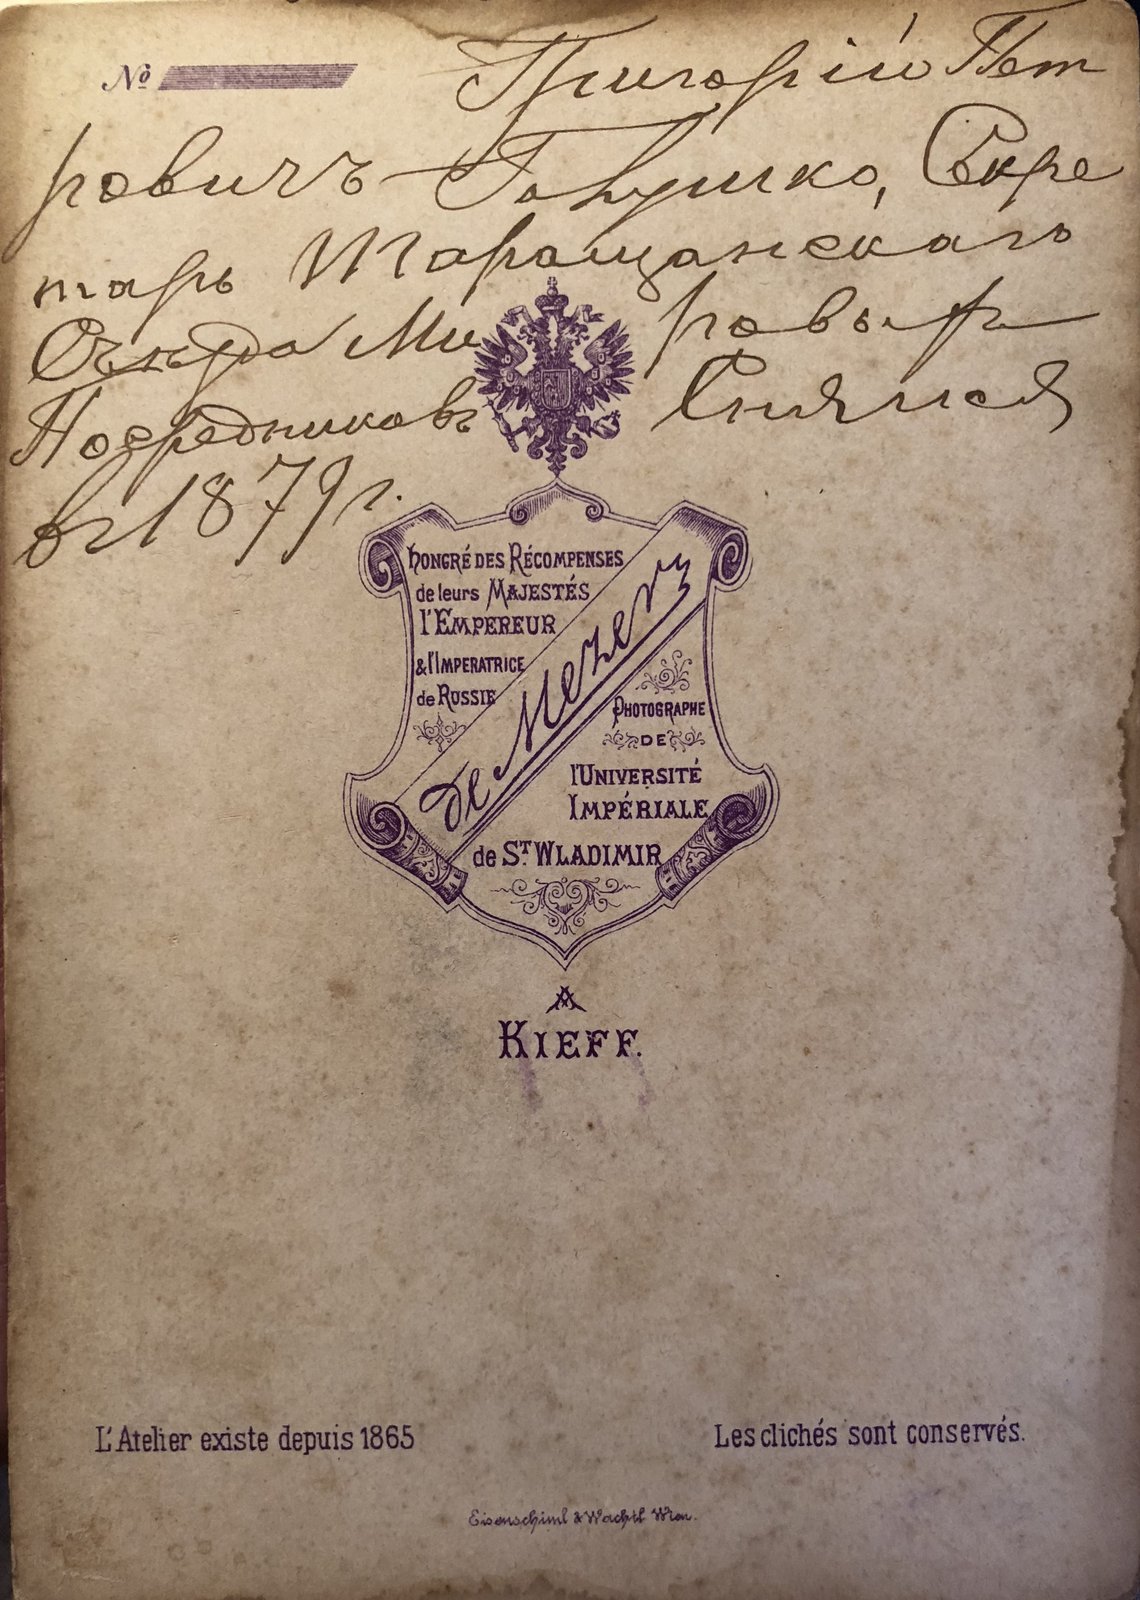 №
Григорій Пет
ровичъ Секре
тарь Таращанскаго
Съѣзда Мировыхъ
Посредниковъ Снялся
въ 1879 г.
HONORÉ DES RÉCOMPENSES
de leurs MAJESTÉS
l'EMPEREUR
& l'IMPERATRICE
de RUSSIE
de Mezer
PHOTOGRAPHE
DE
l'UNIVERSITÉ
IMPÉRIALE
de ST WLADIMIR
A
KIEFF.
L'Atelier existe depuis 1865
Les clichés sont conservés.
Eisenschiml & Wachtl Wien.